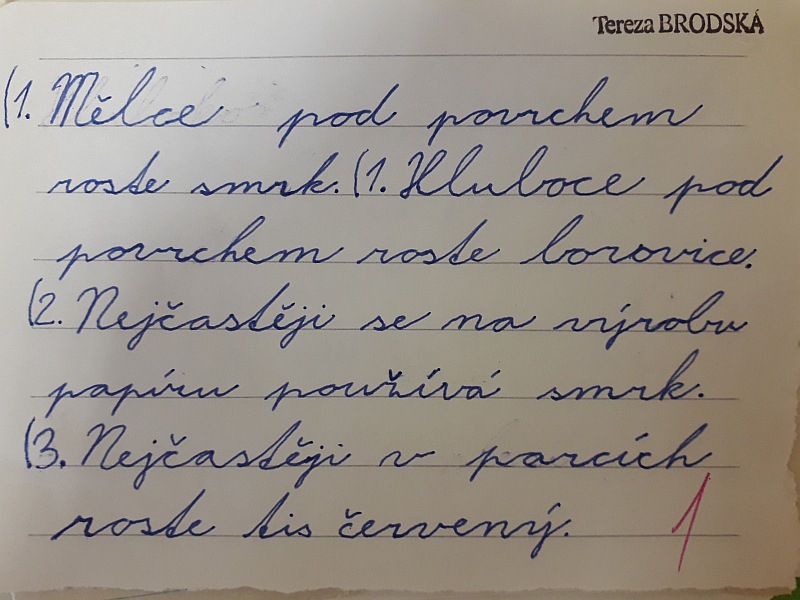 Tereza BRODSKÁ
(1. Mělce pod povrchem
roste smrk. (1. Hluboce pod
povrchem roste borovice.
(2. Nejčastěji se na výrobu
papíru používá smrk.
(3. Nejčastěji v parcích
roste tis červený.
1